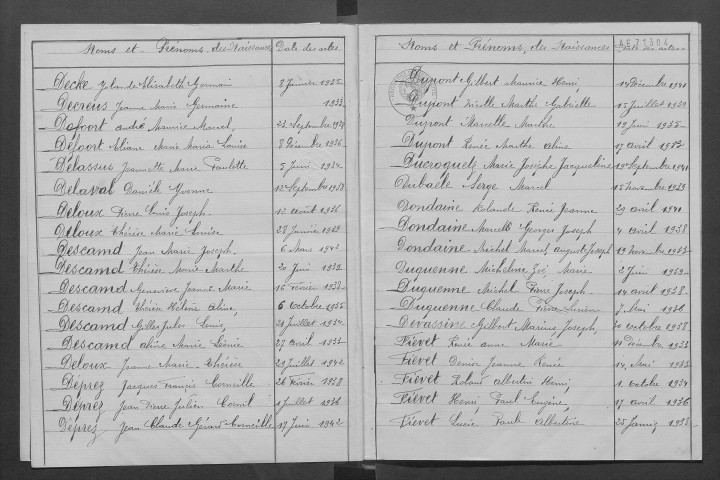 Noms et Prénoms des Naissances Date des actes
Decke Yolande Elisabeth Germain 8 Janvier 1932
Decreus Jeanne Marie Germaine 1933
Defoort André Maurice Marcel 23 Septembre 1934
Defoort Eliane Marie Maria Louise 8 Décembre 1936
Delassus Jeannette Marie Paulette 5 Juin 1934
Delaval Danièle Yvonne 12 Septembre 1938
Deloux Pierre Louis Joseph 12 août 1936
Deloux Thérèse Marie Louise 28 Janvier 1939
Descamd Jean Marie Joseph 6 Mars 1942
Descamd Thérèse Marie Marthe 20 Juin 1939
Descamd Geneviève Jeanne Marie 16 Février 1938
Descamd Thérèse Hélène Aline, 6 octobre 1935
Descamd Gilles Jules Louis, 21 Juillet 1934
Descamd Aline Marie Génie 27 avril 1933
Deloux Jeanne Marie Thérèse 29 Juillet 1942
Déprez Jacques François Corneille 26 Février 1938
Déprez Jean Pierre Julien Cornil 1 Juillet 1936
Déprez Jean Claude Gérard Corneille 17 Juin 1942
Noms et Prénoms des Naissances Date des actes
Dupont Gilbert Maurice Henri, 14 Décembre 1941
Dupont Marthe Gabrielle 15 Juillet 1939
Dupont Marcelle Marthe 19 Juin 1935
Dupont Renée Marthe Aline 17 avril 1932
Ducroquetz Marie Josèphe Jacqueline 19 Septembre 1941
Dubaele Serge Marcel 15 novembre 1939
Dondaine Rolande Renée Jeanne 29 avril 1941
Dondaine Marcelle Georges Joseph 4 avril 1938
Dondaine Michel Marcel August Joseph 19 Novembre 1933
Duquenne Micheline Zoé Marie 2 Juin 1939
Duquenne Michel Pierre Joseph 14 avril 1938
Duquenne Claude Pierre Lucien 7 Mai 1936
Devassène Gilbert Marius Joseph, 30 octobre 1938
Fiévet Renée Anne Marie 11 Décembre 1933
Fiévet Denise Jeanne Renée 14 Mai 1933
Fiévet Roland Albertin Henri, 1 octobre 1934
Fiévet Henri Paul Eugène, 17 avril 1936
Fiévet Lucie Paule Albertine 25 Janvier 1938